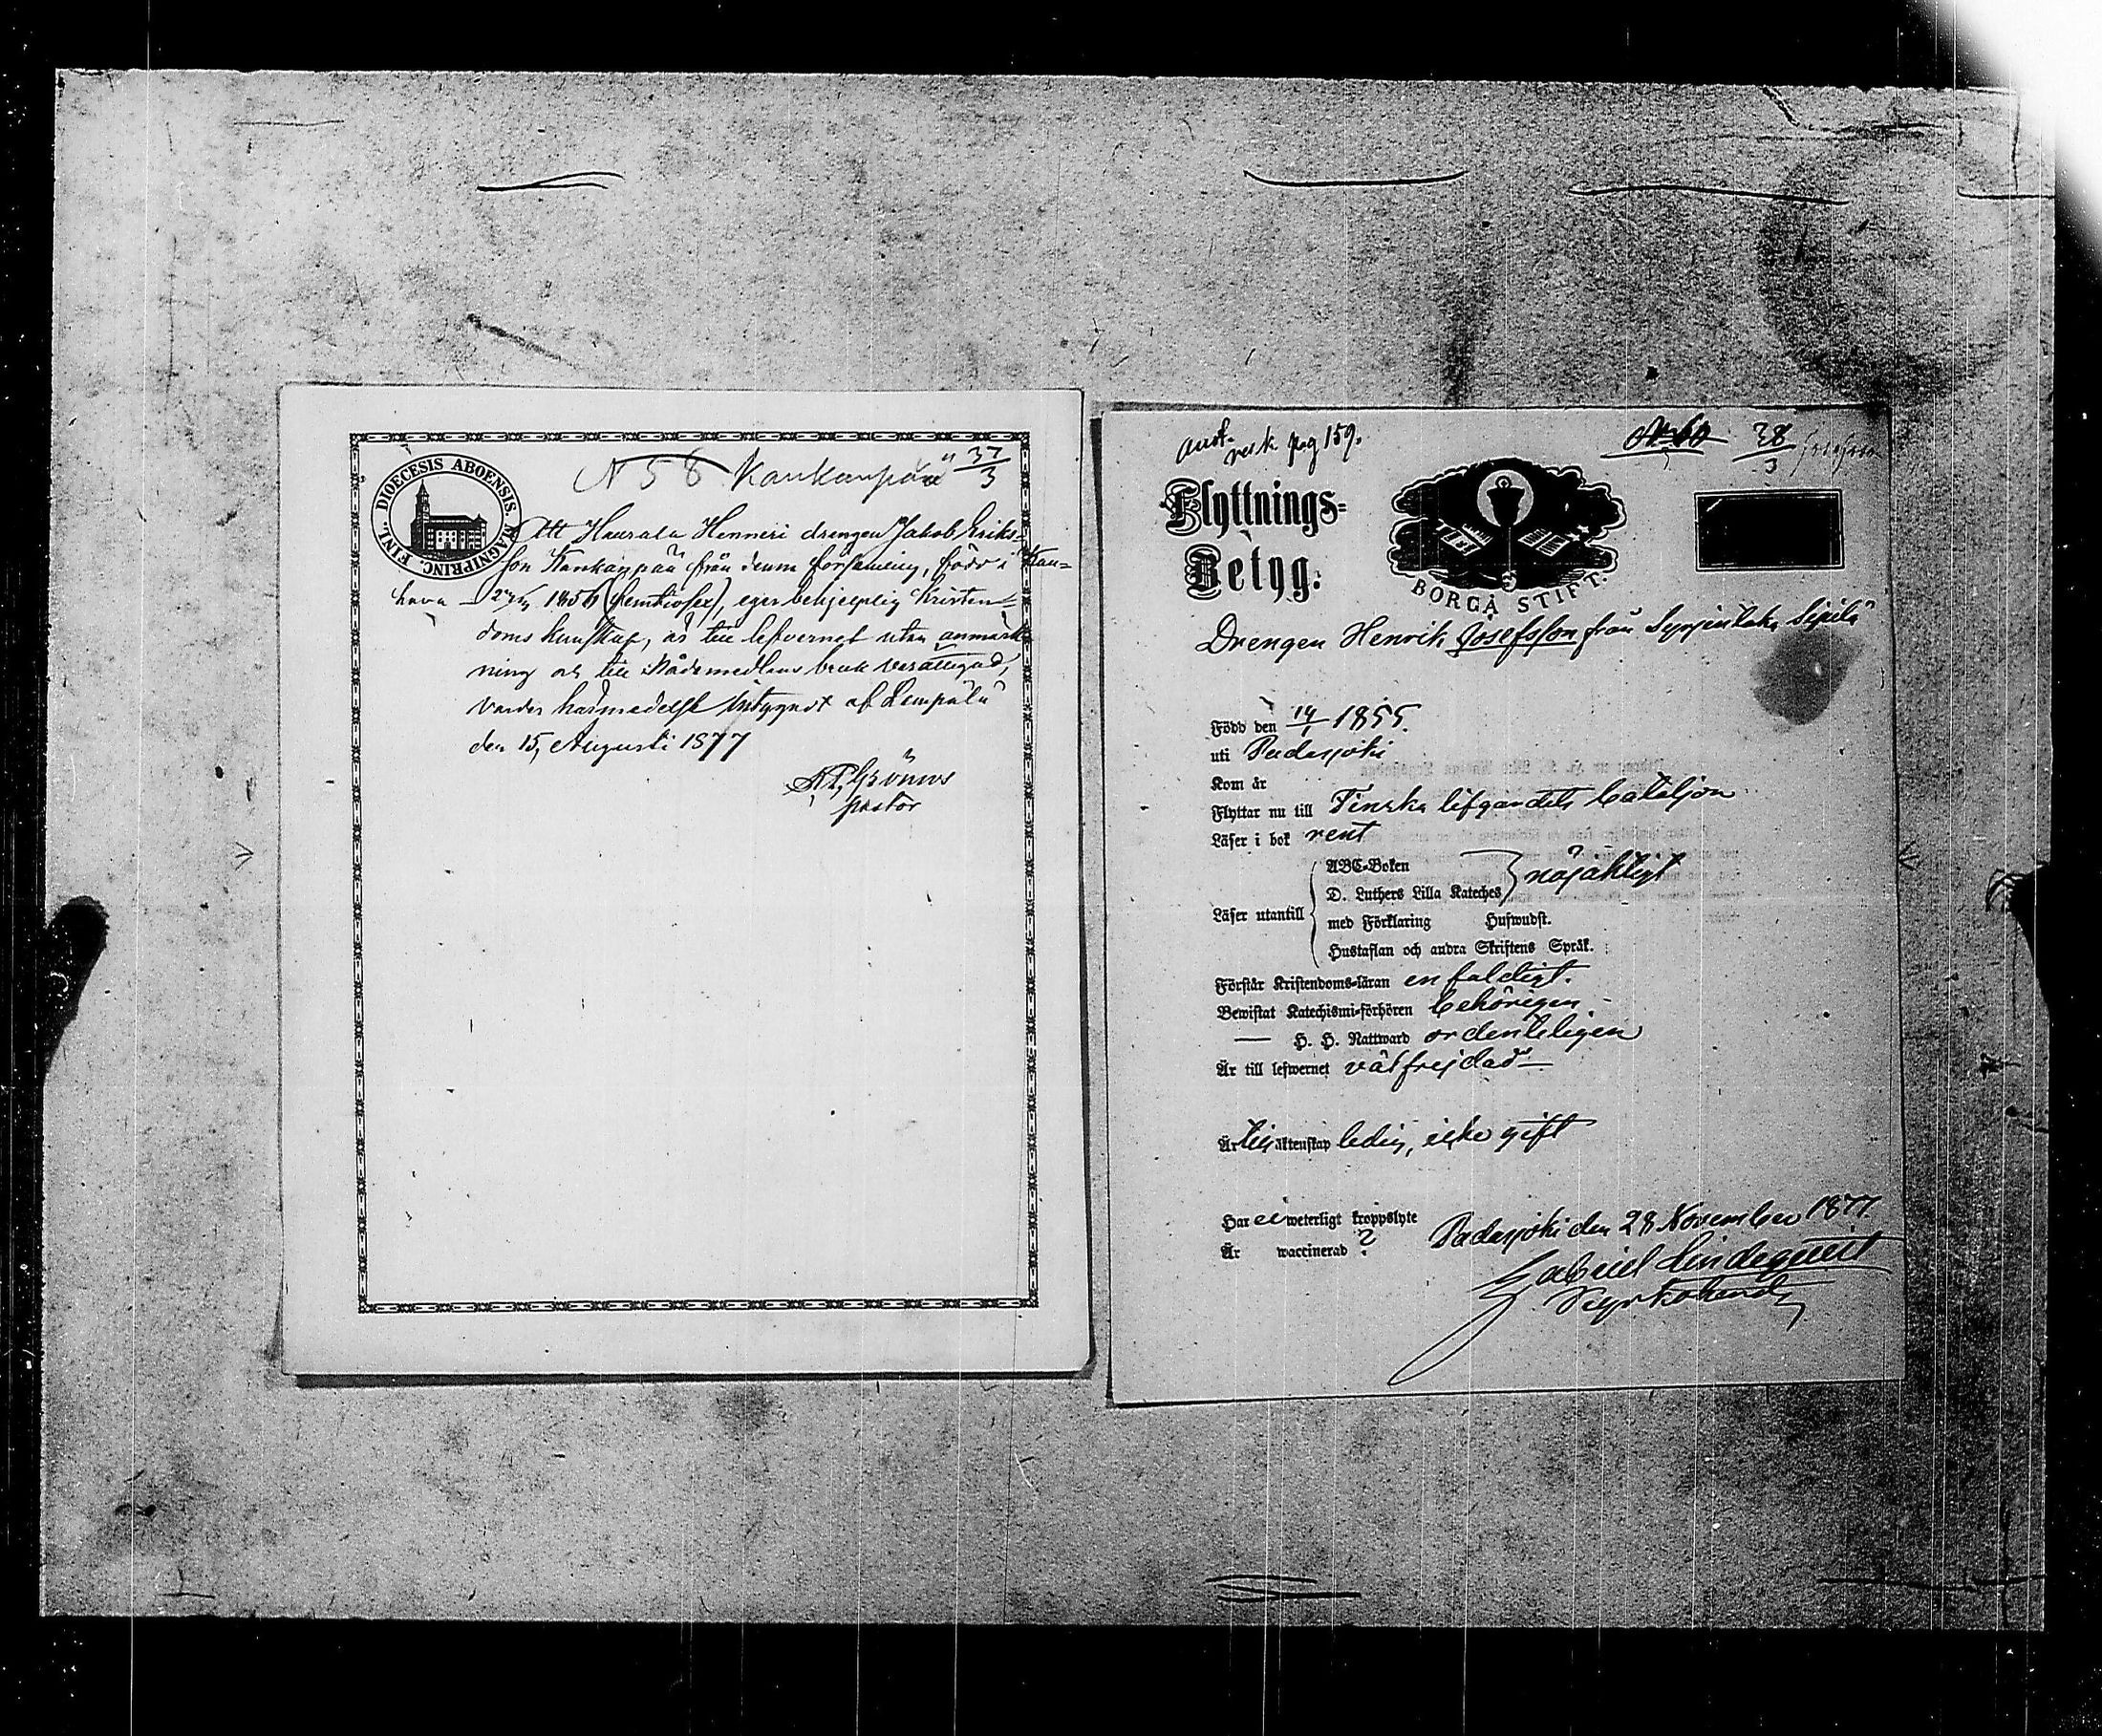 N 58 Kankanpää 37/3
DIOECESIS ABOENSIS. MAGNIPRINC. FINL.
Att Haurala Henneri drengen Jakob Eriks-
son Kankanpää från denna församling, född i Kan-
1856 (femtiosex), eger behjelplig kristen-
doms kunskap, är till lefvernet utan anmärk-
ning och till Nådemedlens bruk berättigad,
varder härmedelst intygadt af Lempälä
den 15 Augusti 1877
Grönros
pastor
pag 159.
No 60 38/3
Flyttnings-
Betyg.
BORGÅ STIFT.
Drengen Henrik Josefsson från Seppilä
Född den 14/1 1855.
uti Padasjoki
Kom år
Flyttar nu till Finska lifgardets bataljon
Läser i bok rent
Läser utantill
ABC-Boken
D. Luthers Lilla Kateches nöjaktigt
med Förklaring Hufwudst.
Hustaflan och andra Skriftens Språk.
Förstår Kristendoms-läran enfaldigt.
Bewistat Katechismi-förhören behörigen
— H. H. Nattward ordentligen
Är till lefwernet välfrejdad
Är till äktenskap ledig, icke gift
Har ei weterligt kroppslyte
Är waccinerad ?
Padasjoki den 28 November 1877.
Gabriel Lindequist
Kyrkoherde